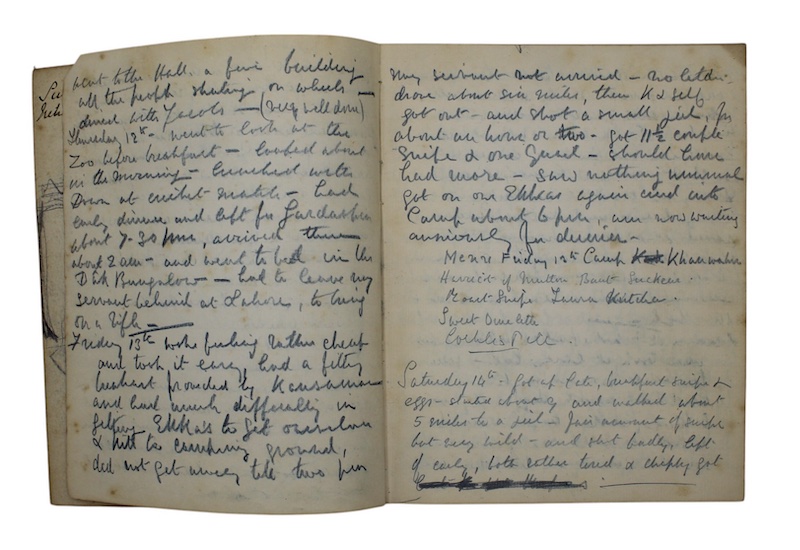 went to the Hall. a fine building
all the people skating, on wheels —
dined with Jacobs — (very well done)
Thursday 12th — went to look at the
Zoo before breakfast — looked about
in the morning — lunched with
Down at cricket match — had
early dinner and left for
about 7-30 pm, arrived there
about 2 am — and went to bed in the
Dâk Bungalow — had to leave my
servant behind at Lahore, to bring
on a rifle —
Friday 13th woke feeling rather cheap
and took it easy, had a filthy
breakfast provided by Kansamar
and had much difficulty in
getting Ekkas to get ourselves
& kit to camping ground,
did not get away till two pm
my servant not arrived — no letter —
drove about six miles, then K & self
got out — and shot a small jeel, for
about an hour or two — got 11½ couple
Snipe & one — should have
had more — saw nothing unusual
got on our Ekkas again and into
Camp about 6 pm, am now waiting
anxiously for dinner —
Menu Friday 13th Camp
Harricot of Mutton
Roast Snipe
Sweet Omelette
Saturday 14th — Got up late, breakfast snipe &
eggs — started about 9 and walked about
5 miles to a jeel — fair amount of snipe
but very wild — and shot badly, left
off early, both rather tired & cheaply got